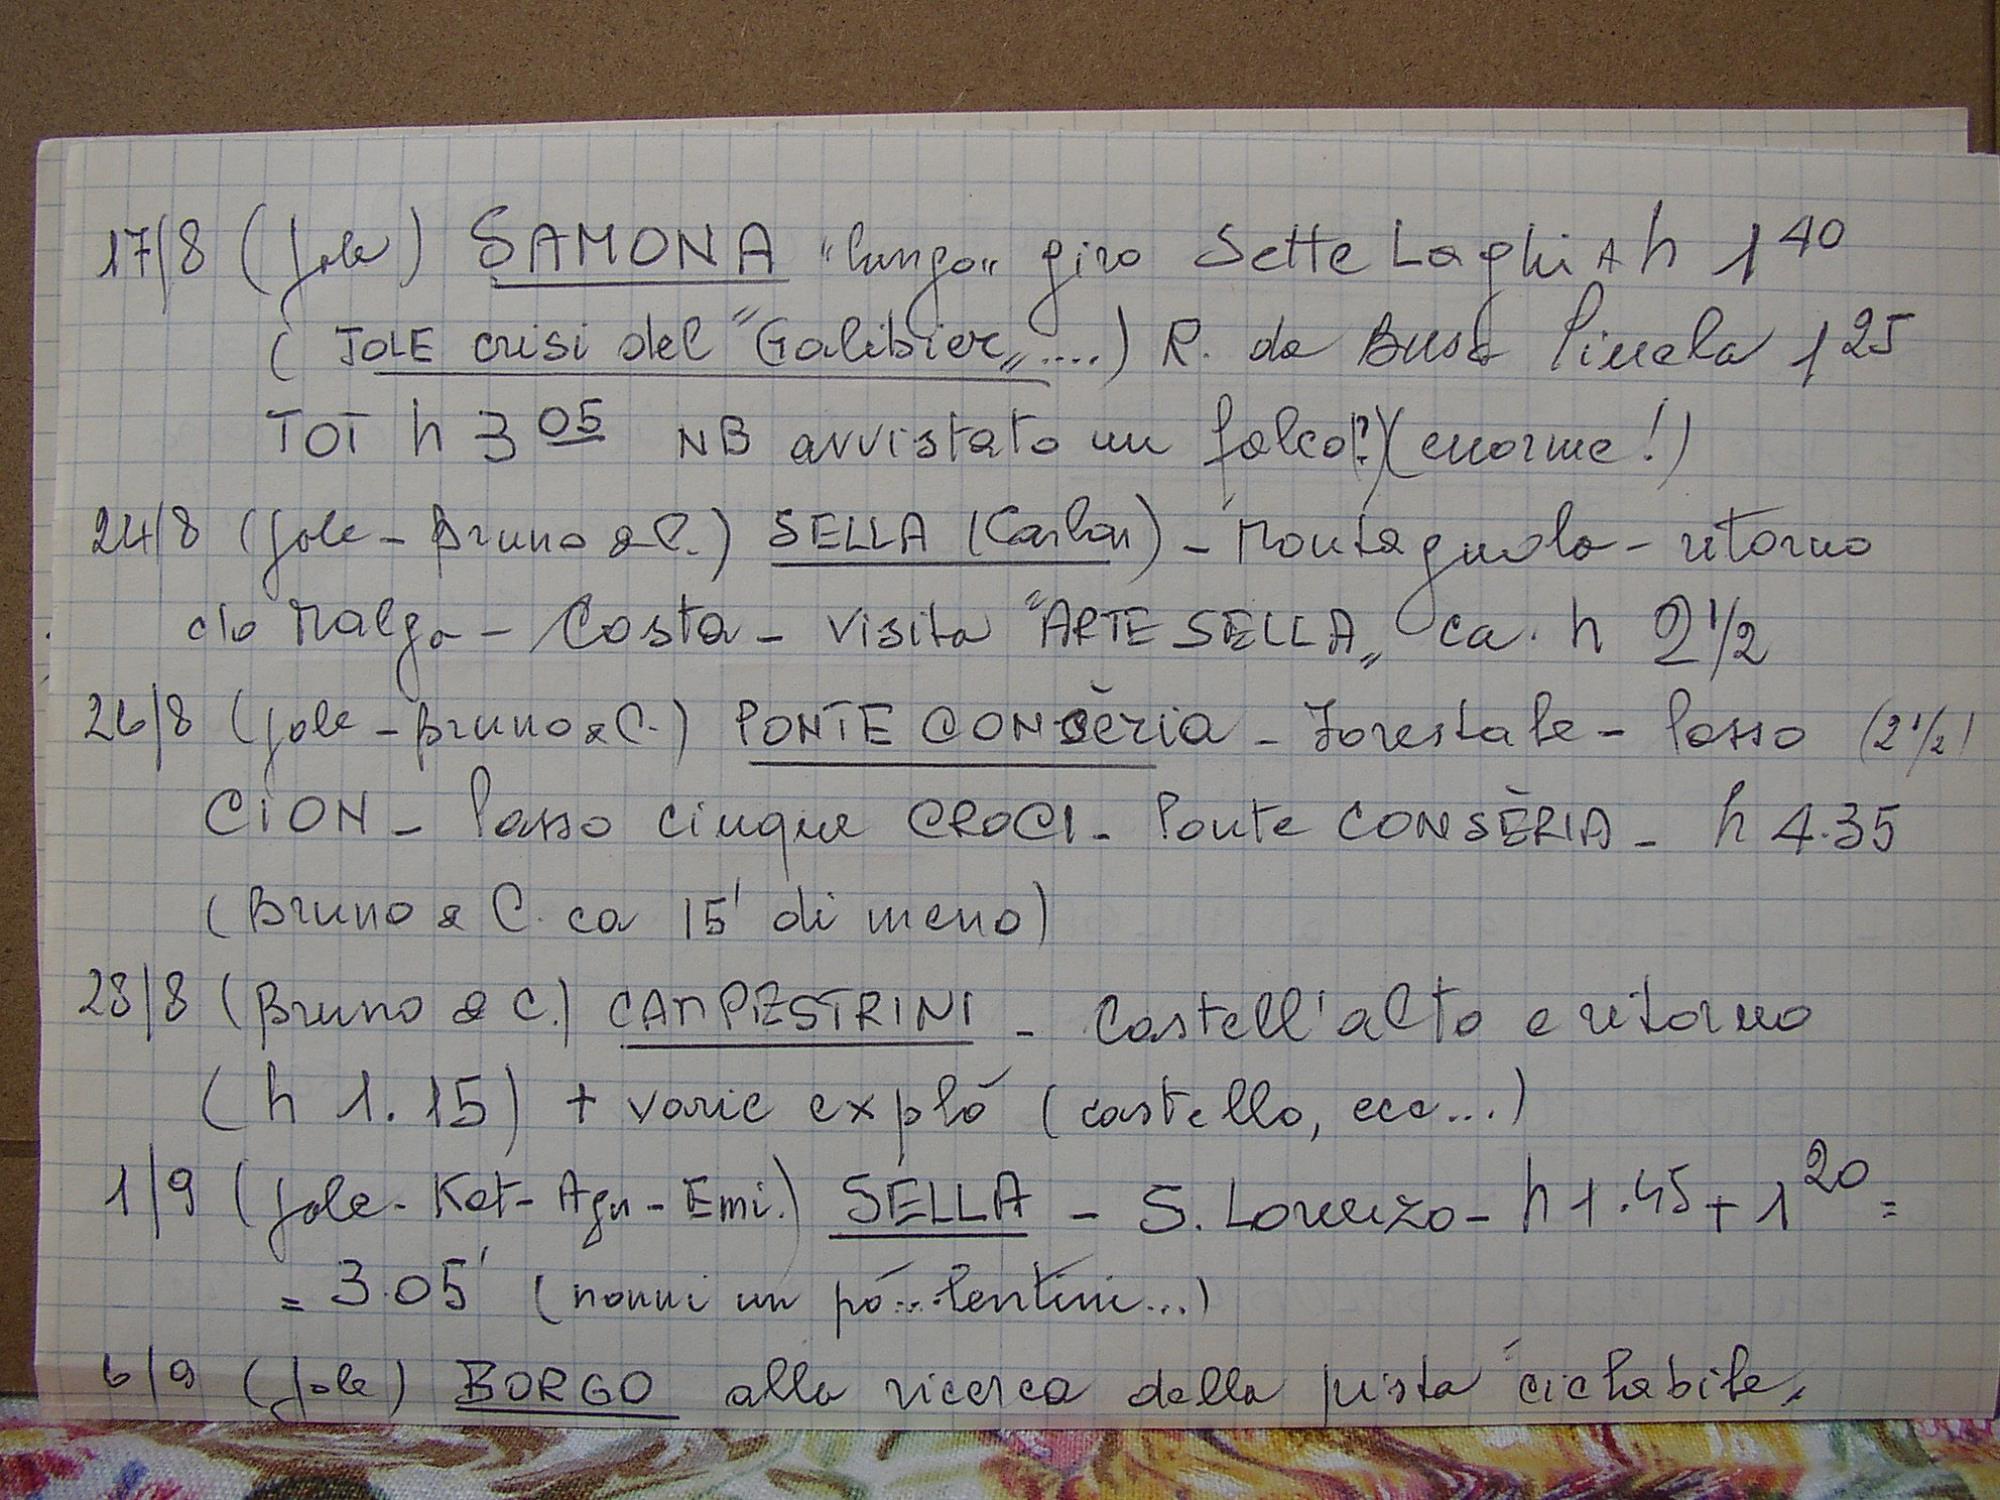 17/8 (Jole) SAMONA "lungo" giro Sette Laghi A h 1 40
(JOLE crisi del "Galibier"....) R. da Busa Pinela 1 25
TOT h 3 05 NB avvistato un falco(?)(enorme!)
24/8 (Jole - Bruno & C.) SELLA (Carlon) - Montagnola - ritorno
c/o Malga - Costa - visita "ARTE SELLA" ca. h 2 1/2
26/8 (Jole - Bruno & C.) PONTE CONSÈRIA - Forestale - Passo (2 1/2)
CION - Passo cinque CROCI - Ponte CONSÈRIA - h 4.35
(Bruno & C. ca 15' di meno)
28/8 (Bruno & C.) CAMPESTRINI - Castell'alto e ritorno
(h 1.15) + varie explò (castello, ecc...)
1/9 (Jole - Kat - Agn - Emi.) SELLA - S. Lorenzo - h 1.45 + 1 20 =
= 3.05' (nonni un pó... lentini...)
6/9 (Jole) BORGO alla ricerca della pista ciclabile,